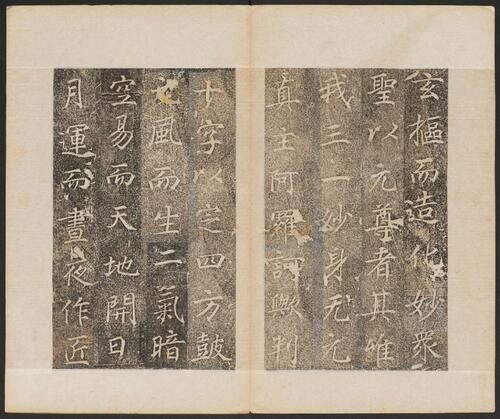 玄樞而造化妙衆
聖以元尊者其唯
我三一妙身无元
真主阿羅訶歟判
十字以定四方鼓
元風而生二氣暗
空易而天地開日
月運而晝夜作匠